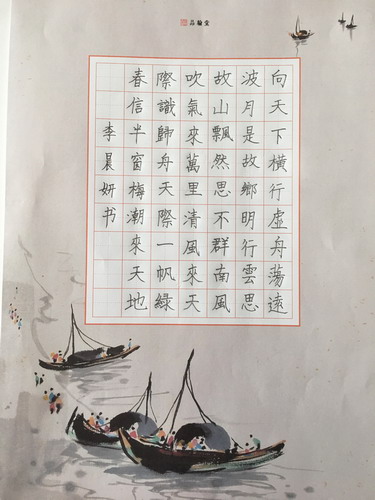 品翰堂
向天下橫行虛舟蕩遠
波月是故鄉明行雲思
故山飄然思不群南風
吹氣來萬里清風來天
際識歸舟天際一帆綠
春信半窗梅潮來天地
李晨妍书